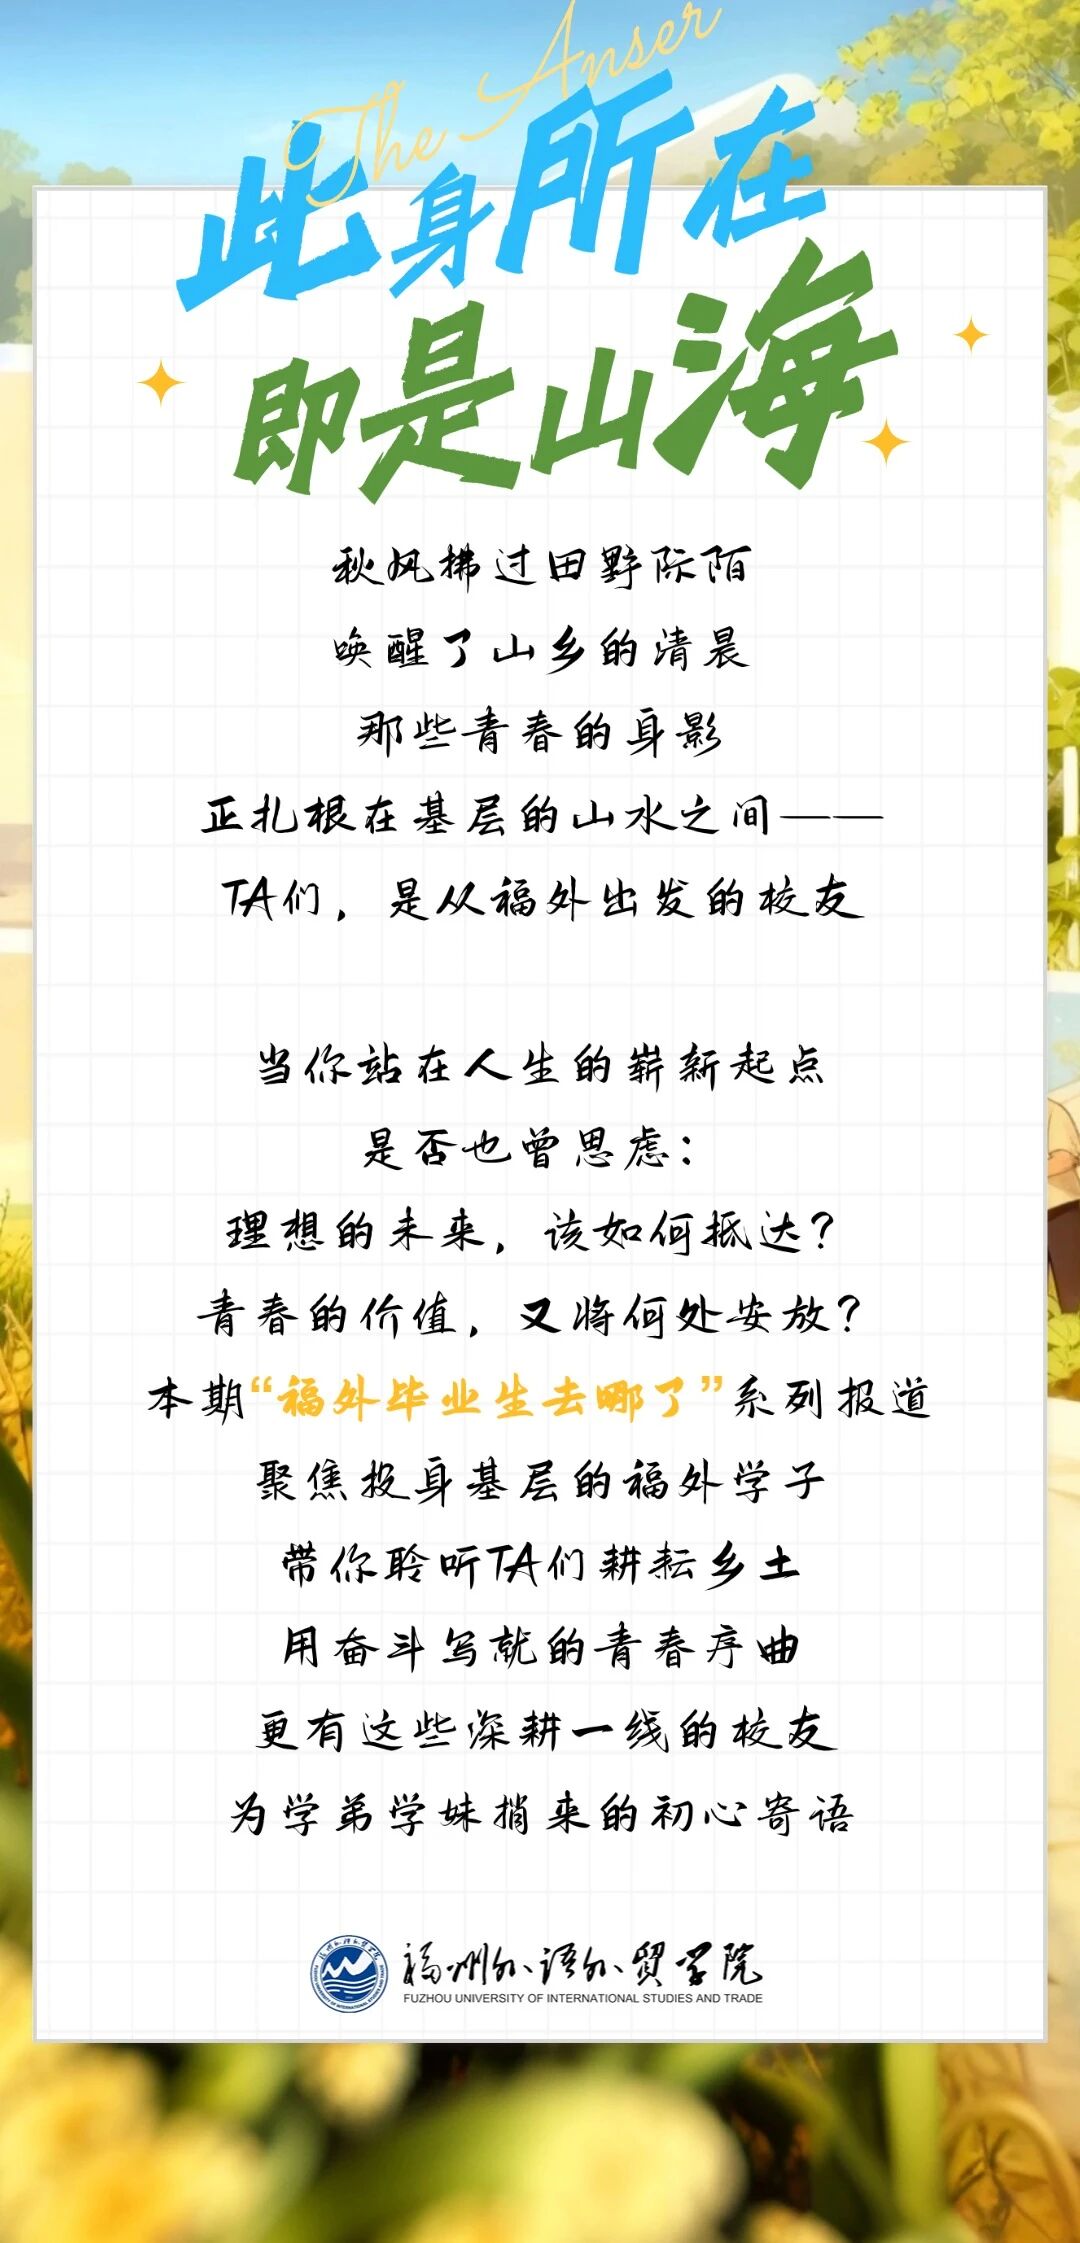 The Anser
此身所在
即是山海
秋风拂过田野际陌
唤醒了山乡的清晨
那些青春的身影
正扎根在基层的山水之间——
TA们，是从福外出发的校友
当你站在人生的崭新起点
是否也曾思虑：
理想的未来，该如何抵达？
青春的价值，又将何处安放？
本期“福外毕业生去哪了”系列报道
聚焦投身基层的福外学子
带你聆听TA们耕耘乡土
用奋斗写就的青春序曲
更有这些深耕一线的校友
为学弟学妹捎来的初心寄语
福州外语外贸学院
FUZHOU UNIVERSITY OF INTERNATIONAL STUDIES AND TRADE